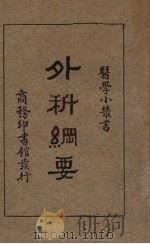 醫學小叢書
外科綱要
商務印書館發行